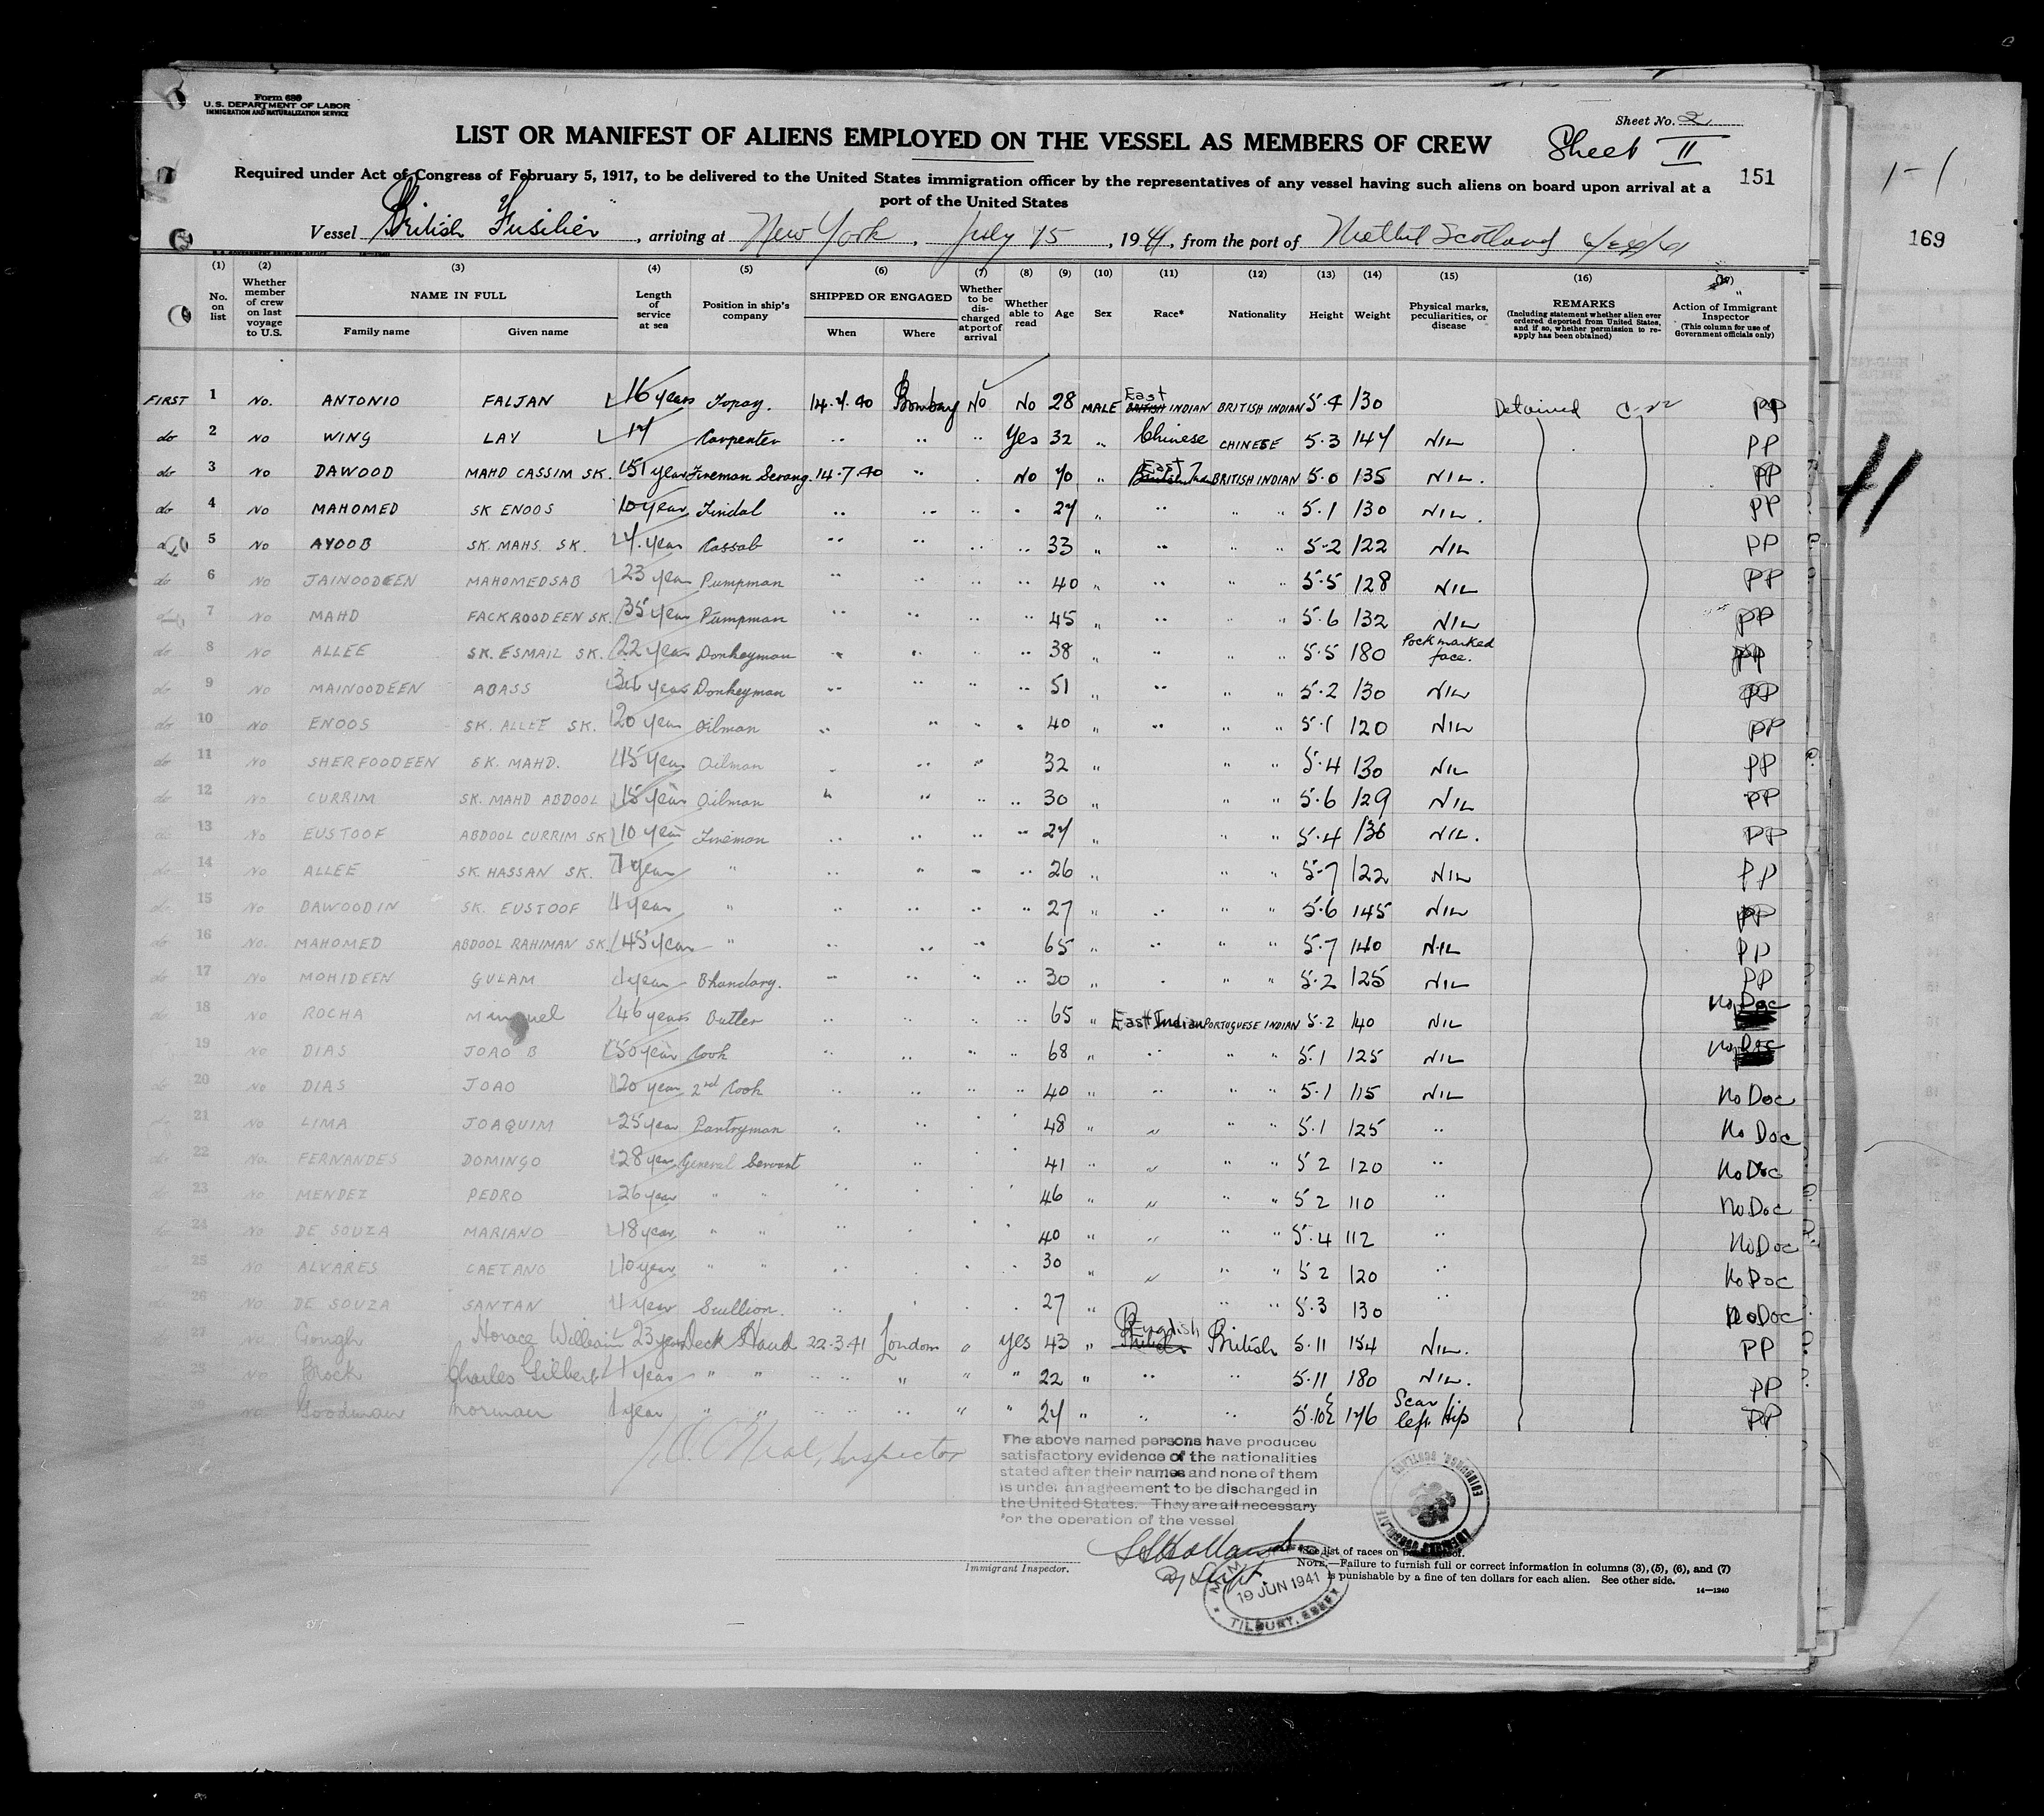 Form 680
U.S. DEPARTMENT OF LABOR
IMMIGRATION AND NATURALIZATION SERVICE
Sheet No. 2
LIST OR MANIFEST OF ALIENS EMPLOYED ON THE VESSEL AS MEMBERS OF CREW
Sheet II
151
Required under Act of Congress of February 5, 1917, to be delivered to the United States immigration officer by the representatives of any vessel having such aliens on board upon arrival at a
port of the United States
Vessel British Fusilier, arriving at New York, July 15, 1941, from the port of Methil Scotland
169
(1) (2) (3) (4) (5) (6) (7) (8) (9) (10) (11) (12) (13) (14) (15) (16)
No. on list
Whether member of crew on last voyage to U.S.
NAME IN FULL
Family name Given name
Length of service at sea
Position in ship's company
SHIPPED OR ENGAGED
When Where
Whether to be discharged at port of arrival
Whether able to read
Age Sex Race* Nationality Height Weight
Physical marks, peculiarities, or disease
REMARKS
(Including statement whether alien ever ordered deported from United States, and if so, whether permission to reapply has been obtained)
Action of Immigrant Inspector
(This column for use of Government officials only)
FIRST 1 No. ANTONIO FALJAN 16 years Topay. 14.7.40 Bombay No No 28 MALE East BRITISH INDIAN BRITISH INDIAN 5.4 130 Detained C-22 PP
do 2 No WING LAY 17 Carpenter " " " Yes 32 " Chinese CHINESE 5.3 147 NIL PP
do 3 No DAWOOD MAHD CASSIM SK. 51 year Fireman Serang. 14.7.40 " No 70 " East BRITISH INDIAN 5.0 135 NIL. PP
do 4 No MAHOMED SK ENOOS 10 year Tindal " " " " 27 " " " " 5.1 130 NIL. PP
5 No AYOOB SK. MAHS. SK. 4. year Cassab " " " " 33 " " " " 5.2 122 NIL PP
do 6 No JAINOODEEN MAHOMEDSAB 23 year Pumpman " " " " 40 " " " " 5.5 128 NIL PP
7 No MAHD FACKROODEEN SK. 35 year Pumpman " " " " 45 " " " " 5.6 132 NIL PP
do 8 No ALLEE SK. ESMAIL SK. 22 year Donkeyman " " " " 38 " " " " 5.5 180 Pock marked face. PP
do 9 No MAINOODEEN ABASS year Donkeyman " " " " 51 " " " " 5.2 130 NIL PP
do 10 No ENOOS SK. ALLEE SK. 20 year Oilman " " " " 40 " " " " 5.1 120 NIL PP
do 11 No SHERFOODEEN SK. MAHD. 15 year Oilman " " " 32 " " " 5.4 130 NIL PP
do 12 No CURRIM SK. MAHD ABDOOL 15 year Oilman " " " " 30 " " " 5.6 129 NIL PP
do 13 No EUSTOOF ABDOOL CURRIM SK 10 year Fireman " " " " 27 " " " 5.4 136 NIL. PP
do 14 No ALLEE SK. HASSAN SK. 7 year " " " " " 26 " " " 5.7 122 NIL PP
do 15 No DAWOODIN SK. EUSTOOF 1 year " " " " " 27 " " " " 5.6 145 NIL PP
do 16 No. MAHOMED ABDOOL RAHIMAN SK. 45 year " " " " 65 " " " " 5.7 140 NIL PP
do 17 No MOHIDEEN GULAM 1 year Bhandary. " " " " 30 " " " " 5.2 125 NIL PP
do 18 No ROCHA Manuel 46 years Butler " " " " 65 " East Indian PORTUGUESE INDIAN 5.2 140 NIL No Doc
19 No DIAS JOAO B 50 year Cook " " " " 68 " " " " 5.1 125 NIL No Doc
do 20 No DIAS JOAO 20 year 2nd Cook " " " " 40 " " " " 5.1 115 NIL No Doc
21 No. LIMA JOAQUIM 25 year Pantryman " " " " 48 " " " " 5.1 125 " No Doc
do 22 No. FERNANDES DOMINGO 28 year General Servant " " " 41 " " " " 5 2 120 " No Doc
do 23 No MENDEZ PEDRO 26 year " " " " " " 46 " " " " 5 2 110 " No Doc
do 24 No DE SOUZA MARIANO 18 year " " " " " " 40 " " " " 5.4 112 " No Doc
25 No ALVARES CAETANO 10 year " " " " " " 30 " " " " 5 2 120 " No Doc
26 No. DE SOUZA SANTAN 1 year Scullion. " " " 27 " " " 5.3 130 " No Doc
27 No Gough Horace William 23 year Deck Hand 22.3.41 London " Yes 43 " English British 5.11 154 NIL. PP
28 No Brock Charles Gilbert 1 year " " " " " " " 22 " " " 5.11 180 NIL. PP
No Goodman Norman 1 year " " " " " " " 27 " " " 5.10½ 176 Scar left Hip PP
Inspector
The above named persons have produced
satisfactory evidence of the nationalities
stated after their names and none of them
is under an agreement to be discharged in
the United States. They are all necessary
for the operation of the vessel
EDINBURGH, SCOTLAND
Immigrant Inspector.
19 JUN 1941
TILBURY, ESSEX
*See list of races on back hereof.
NOTE.—Failure to furnish full or correct information in columns (3), (5), (6), and (7)
is punishable by a fine of ten dollars for each alien. See other side.
14—1240